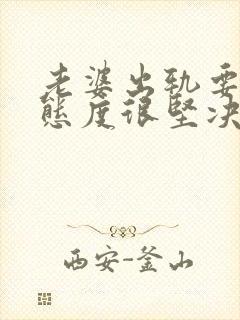 老婆出轨要
态度很坚决
西安-釜山